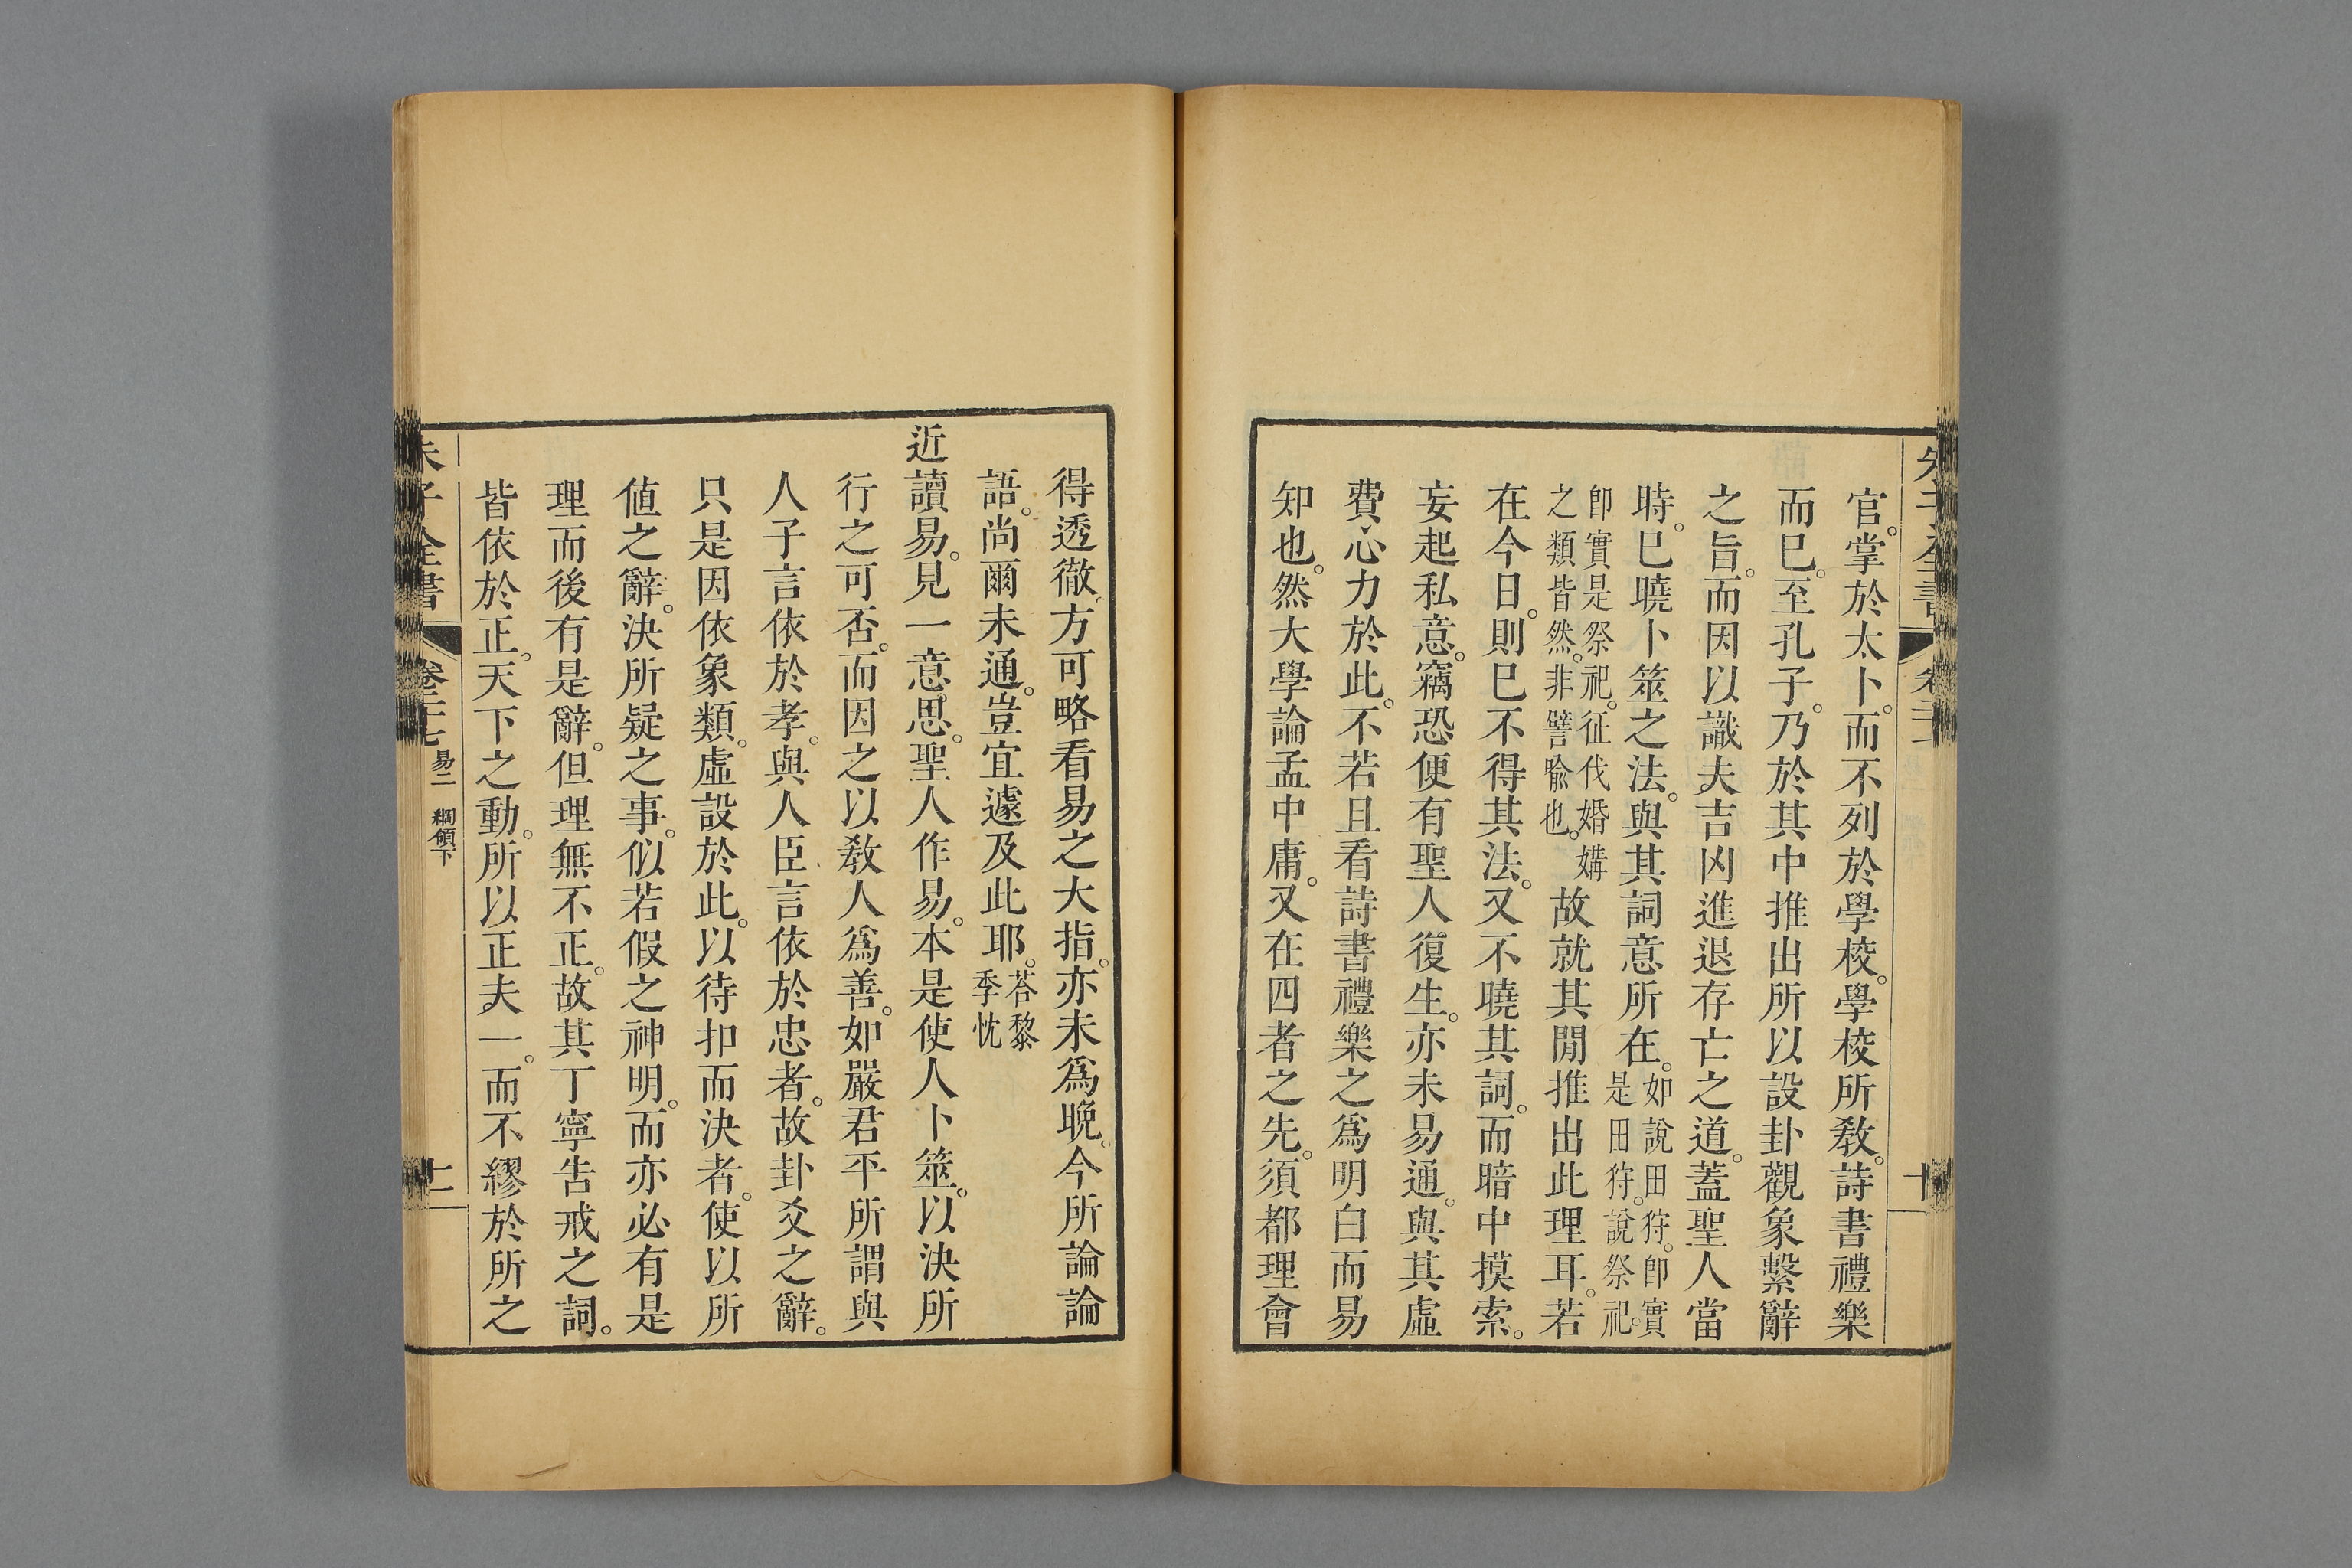 官。掌於太卜。而不列於學校。學校所敎。詩書禮樂
而已。至孔子。乃於其中推出所以設卦觀象繫辭
之旨。而因以識夫吉凶進退存亡之道。蓋聖人當
時。已曉卜筮之法。與其詞意所在。如說田狩。卽實是田狩。說祭祀。
卽實是祭祀。征伐婚媾之類皆然。非譬喩也。故就其閒推出此理耳。若
在今日。則已不得其法。又不曉其詞。而暗中摸索。
妄起私意。竊恐便有聖人復生。亦未易通。與其虛
費心力於此。不若且看詩書禮樂之爲明白而易
知也。然大學論孟中庸。又在四者之先。須都理會
得透徹。方可略看易之大指。亦未爲晚。今所論論
語。尚爾未通。豈宜遽及此耶。荅黎季忱
近讀易。見一意思。聖人作易。本是使人卜筮。以決所
行之可否。而因之以敎人爲善。如嚴君平所謂與
人子言依於孝。與人臣言依於忠者。故卦爻之辭。
只是因依象類。虛設於此。以待扣而決者。使以所
値之辭。決所疑之事。似若假之神明。而亦必有是
理而後有是辭。但理無不正。故其丁寧告戒之詞。
皆依於正。天下之動。所以正夫一。而不繆於所之
朱子全書 卷二十七 易二 綱領下 十一